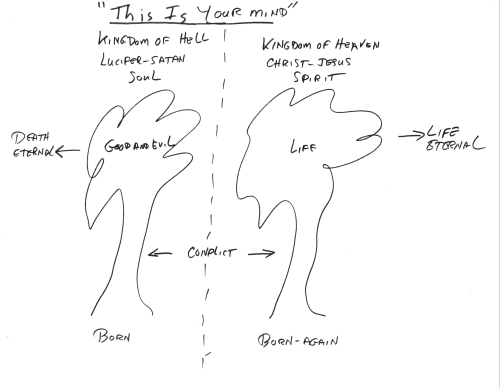 "This Is Your Mind"
KINGDOM OF HELL
LUCIFER-SATAN
SOUL
KINGDOM OF HEAVEN
CHRIST-JESUS
SPIRIT
DEATH
ETERNAL
GOOD AND EVIL
LIFE
LIFE
ETERNAL
CONFLICT
BORN
BORN-AGAIN